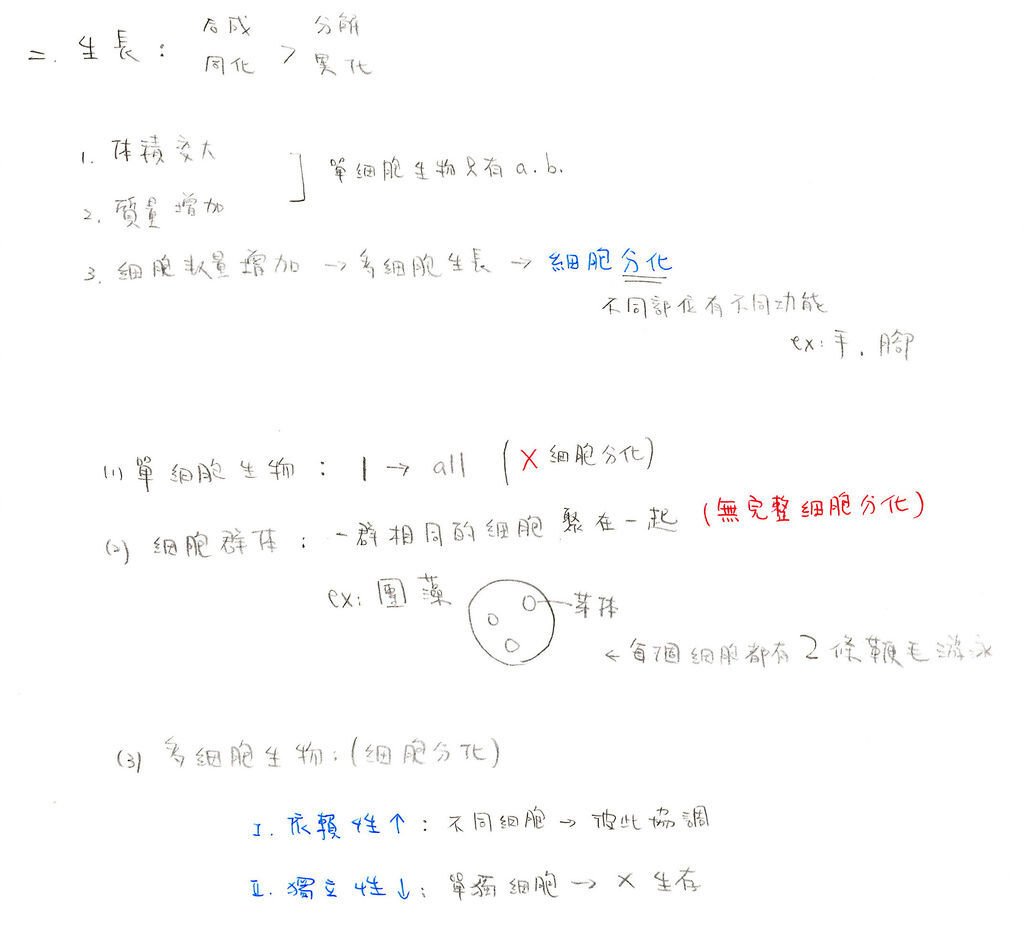 二. 生長： 合成 > 分解
同化 異化
1. 体積变大
2. 質量增加
] 單細胞生物只有 a.b.
3. 細胞数量增加 → 多細胞生長 → 細胞分化
不同部位有不同功能
ex: 手、腳
(1) 單細胞生物： 1 → all (X 細胞分化)
(2) 細胞群体： 一群相同的細胞 聚在一起 (無完整細胞分化)
ex: 團藻
芽体
← 每個細胞都有 2 條鞭毛游泳
(3) 多細胞生物：(細胞分化)
I. 依賴性↑： 不同細胞 → 彼此協調
II. 獨立性↓： 單獨細胞 → X 生存